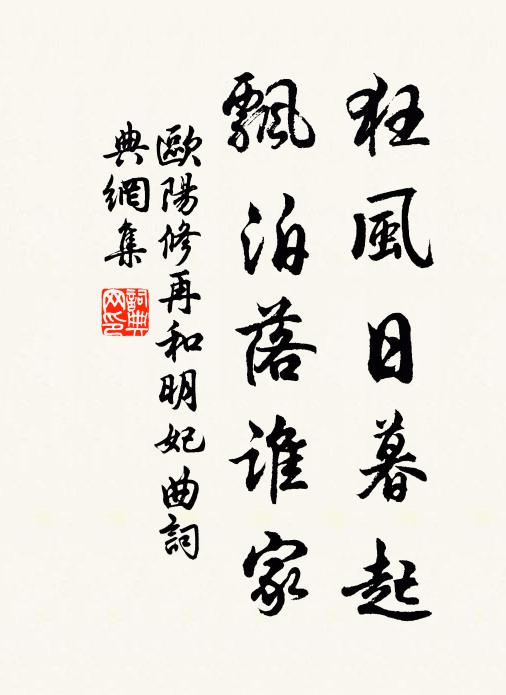 狂風日暮起
飄泊落誰家
歐陽修再和明妃曲詞
典網集
詞典
网印